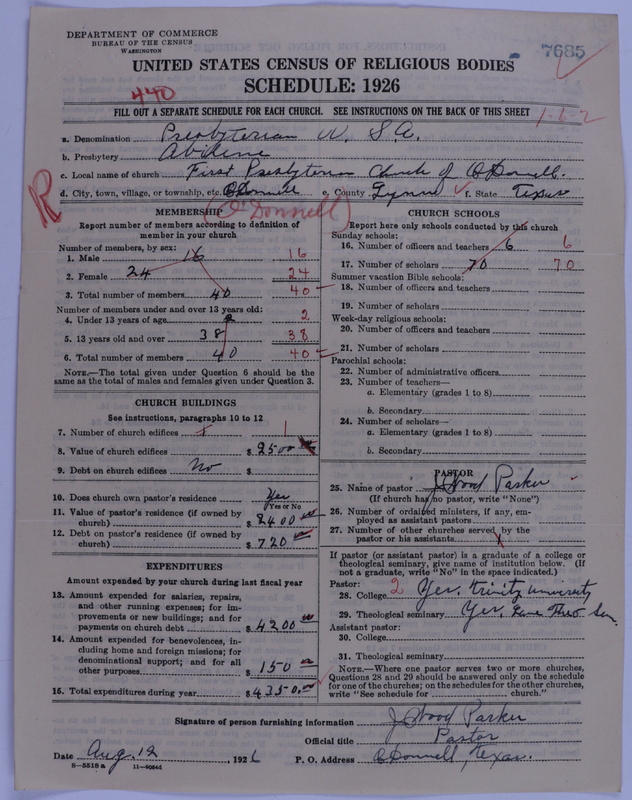 DEPARTMENT OF COMMERCE
BUREAU OF THE CENSUS
WASHINGTON
7685
UNITED STATES CENSUS OF RELIGIOUS BODIES
SCHEDULE: 1926
440
FILL OUT A SEPARATE SCHEDULE FOR EACH CHURCH. SEE INSTRUCTIONS ON THE BACK OF THIS SHEET
1-6-2
a. Denomination Presbyterian U. S. A.
b. Presbytery Abilene
c. Local name of church First Presbyterian Church of O'Donnell.
d. City, town, village, or township, etc. O'Donnell e. County Lynn f. State Texas
R
(O'Donnell)
MEMBERSHIP
Report number of members according to definition of member in your church
Number of members, by sex:
1. Male 16 16
2. Female 24 24
3. Total number of members 40 40
Number of members under and over 13 years old:
4. Under 13 years of age 2 2
5. 13 years old and over 38 38
6. Total number of members 40 40
NOTE.—The total given under Question 6 should be the same as the total of males and females given under Question 3.
CHURCH BUILDINGS
See instructions, paragraphs 10 to 12
7. Number of church edifices 1 1
8. Value of church edifices $ 2500
9. Debt on church edifices No $
10. Does church own pastor's residence Yes
Yes or No
11. Value of pastor's residence (if owned by church) $ 2400 00
12. Debt on pastor's residence (if owned by church) $ 720
EXPENDITURES
Amount expended by your church during last fiscal year
13. Amount expended for salaries, repairs, and other running expenses; for improvements or new buildings; and for payments on church debt $ 4200 00
14. Amount expended for benevolences, including home and foreign missions; for denominational support; and for all other purposes $ 150 00
15. Total expenditures during year $ 4350.00
CHURCH SCHOOLS
Report here only schools conducted by this church
Sunday schools:
16. Number of officers and teachers 6 6
17. Number of scholars 70 70
Summer vacation Bible schools:
18. Number of officers and teachers
19. Number of scholars
Week-day religious schools:
20. Number of officers and teachers
21. Number of scholars
Parochial schools:
22. Number of administrative officers
23. Number of teachers—
a. Elementary (grades 1 to 8)
b. Secondary
24. Number of scholars—
a. Elementary (grades 1 to 8)
b. Secondary
PASTOR
25. Name of pastor J Wood Parker
(If church has no pastor, write "None")
26. Number of ordained ministers, if any, employed as assistant pastors
27. Number of other churches served by the pastor or his assistants
If pastor (or assistant pastor) is a graduate of a college or theological seminary, give name of institution below. (If not a graduate, write "No" in the space indicated.)
Pastor:
28. College 2 Yes. Trinity University
29. Theological seminary Yes, Lane Theo Sem.
Assistant pastor:
30. College
31. Theological seminary
NOTE.—Where one pastor serves two or more churches, Questions 28 and 29 should be answered only on the schedule for one of the churches; on the schedules for the other churches, write "See schedule for church."
Signature of person furnishing information J Wood Parker
Official title Pastor
Date Aug. 12, 1926 P. O. Address O'Donnell, Texas.
8-5518 a 11-